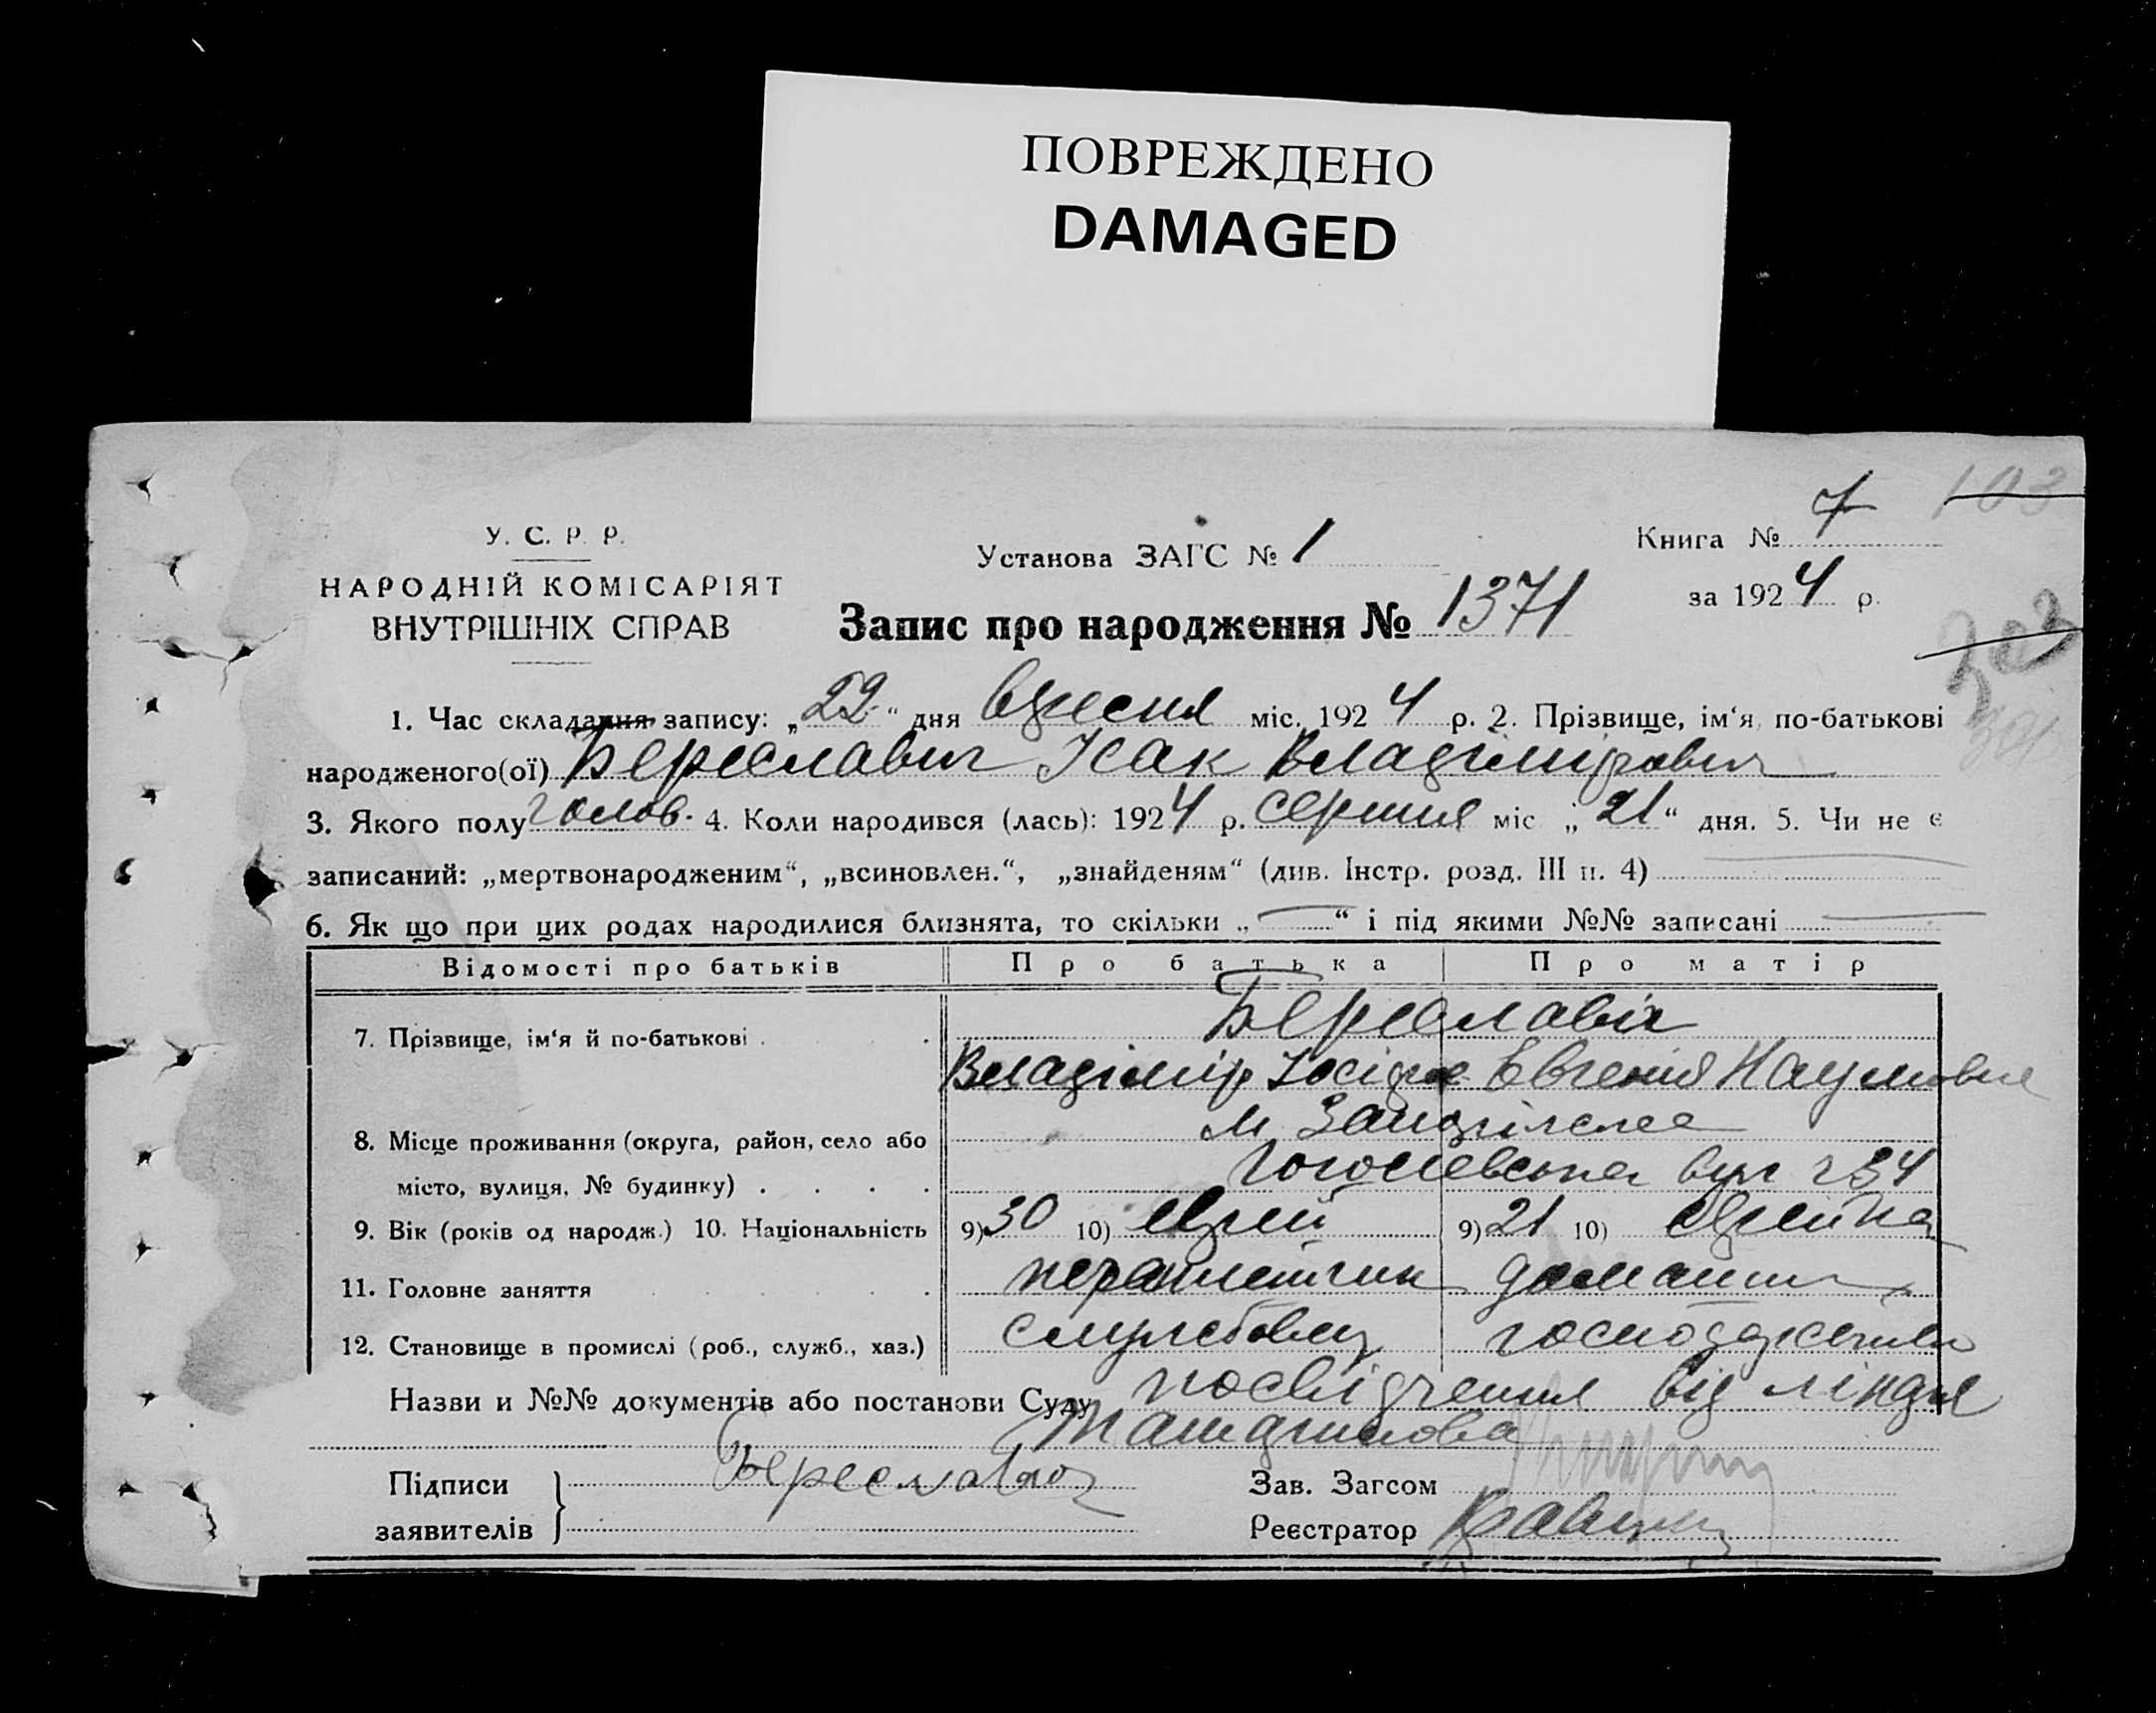 ПОВРЕЖДЕНО
DAMAGED
103
У. С. Р. Р.
НАРОДНІЙ КОМІСАРІЯТ
ВНУТРІШНІХ СПРАВ
Установа ЗАГС № 1
Книга № 7
за 1924 р.
Запис про народження № 1371
203
1. Час складання запису: „22“ дня вресня міс. 1924 р. 2. Прізвище, ім‘я, по-батькові
народженого(ої) Береславич Ісак Владімірович
3. Якого полу чолов. 4. Коли народився (лась): 1924 р. серпня міс „21“ дня. 5. Чи не є
записаний: „мертвонародженим“, „всиновлен.“, „знайденям“ (див. Інстр. розд. III п. 4)
6. Як що при цих родах народилися близнята, то скільки „ “ і під якими №№ записані
Відомості про батьків Про батька Про матір
7. Прізвище, ім‘я й по-батькові .
Береславіч
Владімір Евгенія Наумовна
8. Місце проживання (округа, район, село або
м
місто, вулиця, № будинку) . . . .
Гоголевська вул ч 34
9. Вік (років од народж.) 10. Національність 9) 30 10) єврей 9) 21 10) єврейка
11. Головне заняття
12. Становище в промислі (роб., служб., хаз.)
службовец
Назви и №№ документів або постанови Суду посвідчення від
Підписи
заявителів
Зав. Загсом
Реєстратор